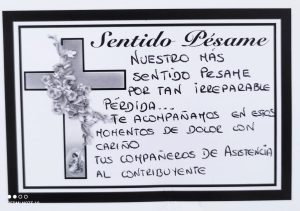 Sentido Pésame
NUESTRO MÁS
SENTIDO PESAME
POR TAN IRREPARABLE
PÉRDIDA...
TE ACOMPAÑAMOS EN ESTOS
MOMENTOS DE DOLOR CON
CARIÑO
TUS COMPAÑEROS DE ASISTENCIA
AL CONTRIBUYENTE